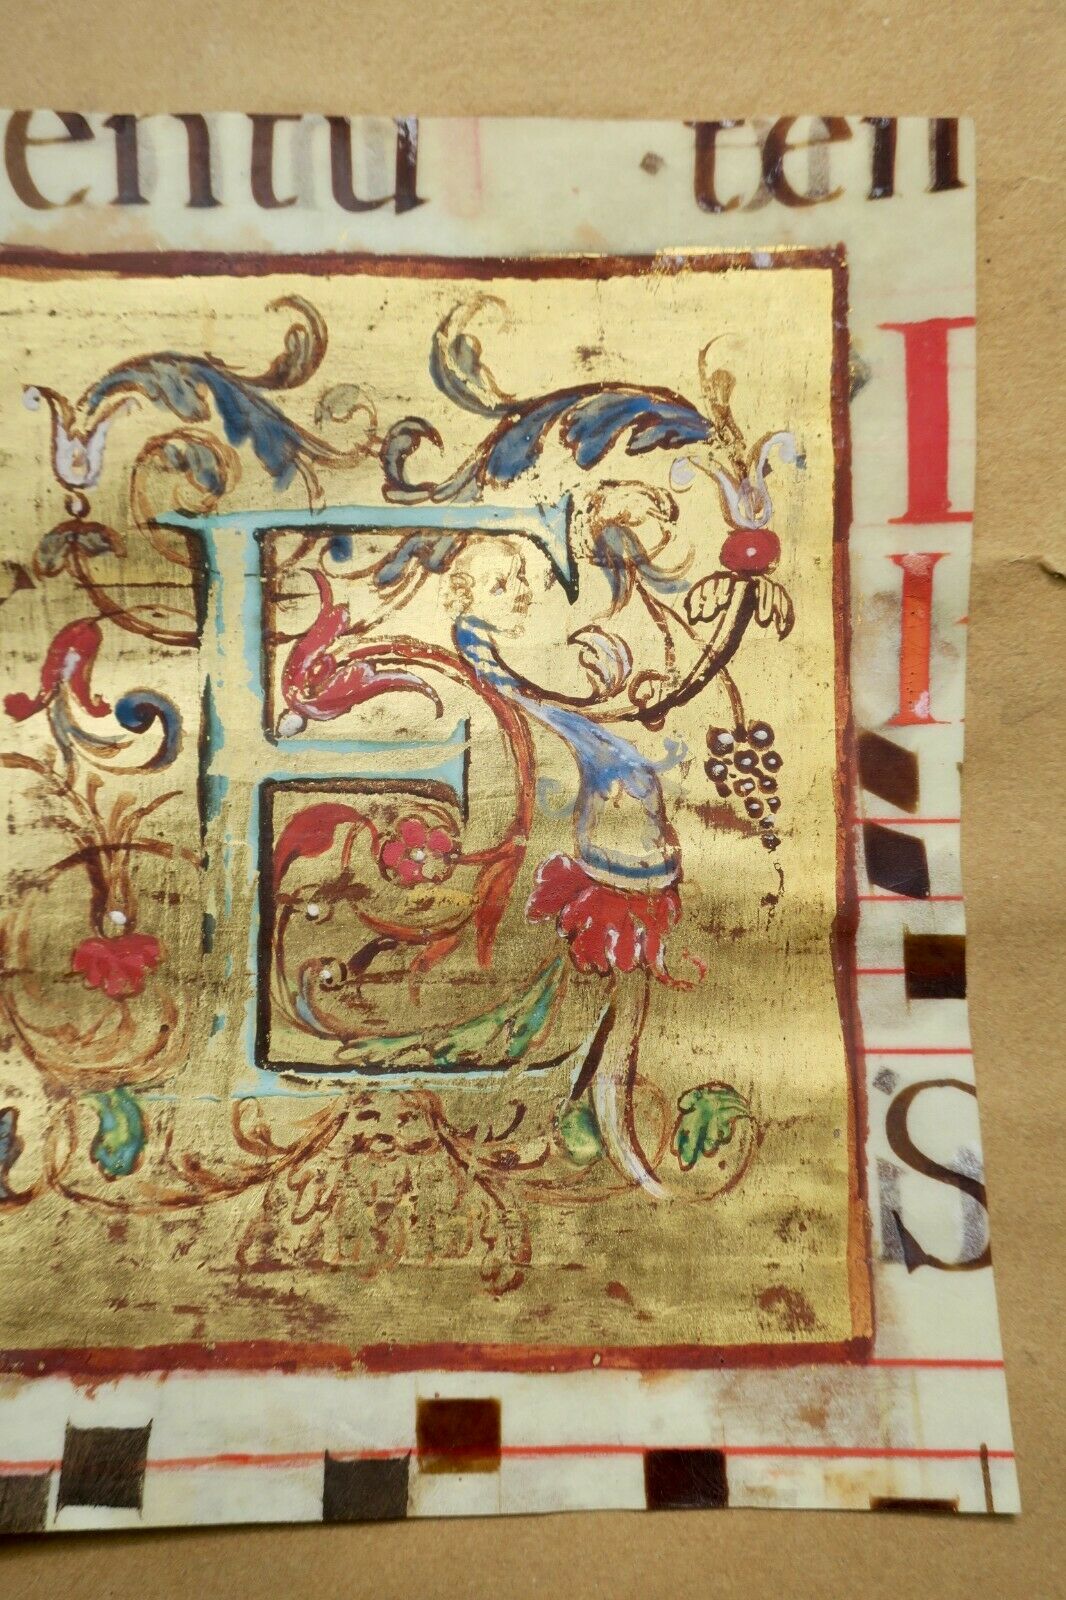 entu ten
E I
I
S